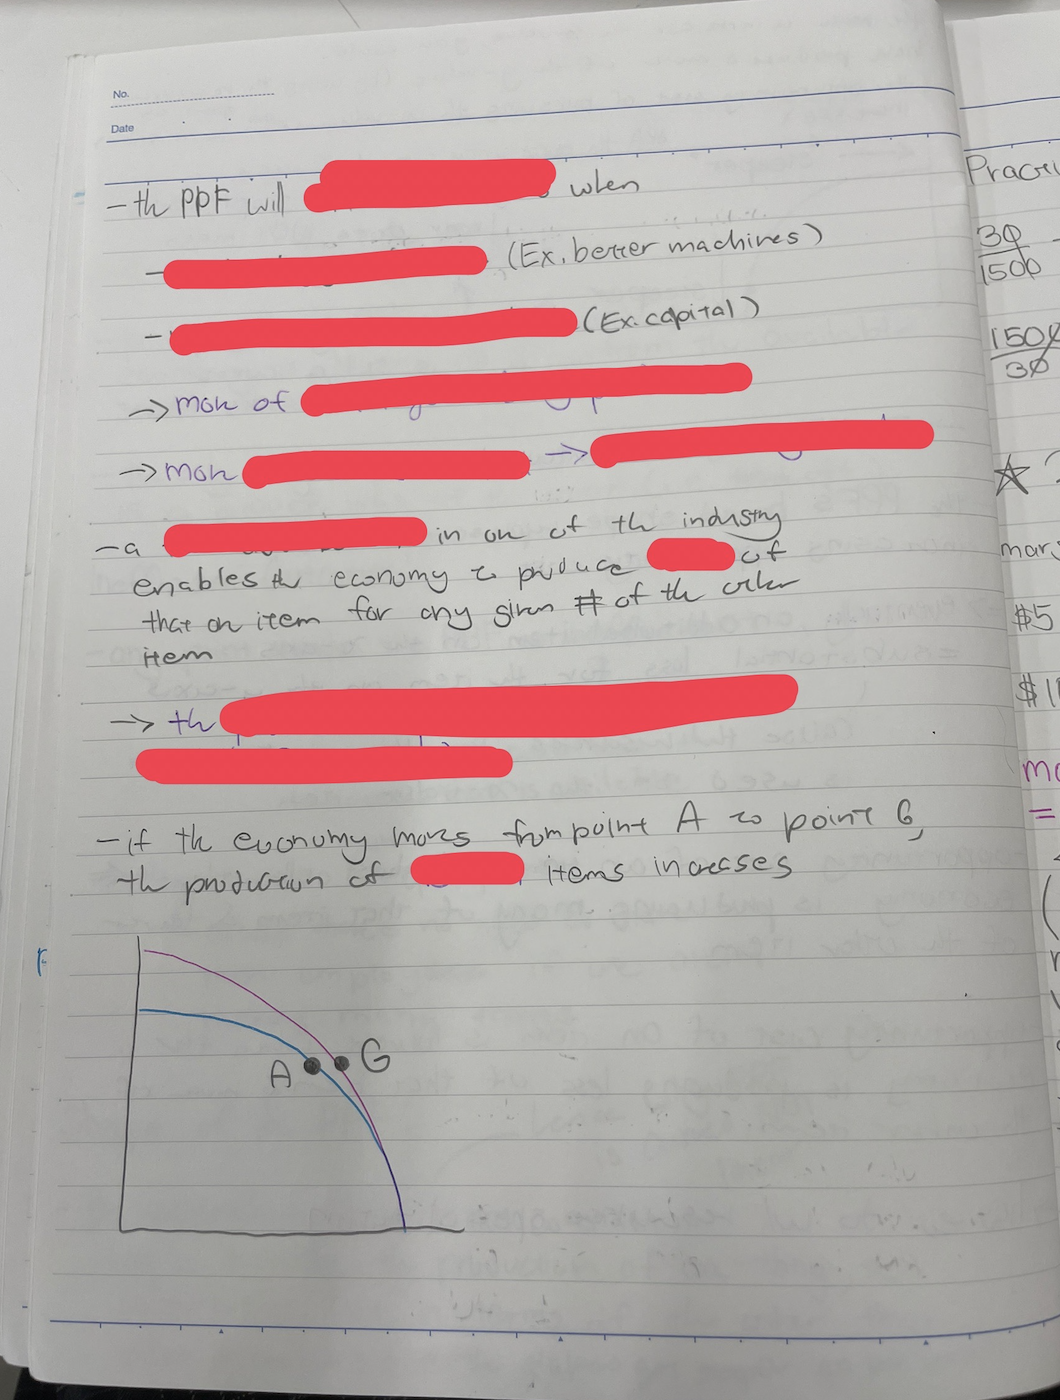 No.
Date
- th PPF will when
- (Ex. better machines)
- (Ex. capital)
→ mor of
→ mor →
- a in on of th industry
enables th economy to produce of
that on item for any given # of th other
item
→ th
- if th economy moves from point A to point G,
th production of items increases
A G
Practi
30
1500
1500
30
☆ ?
mar
$5
$1
mo
=